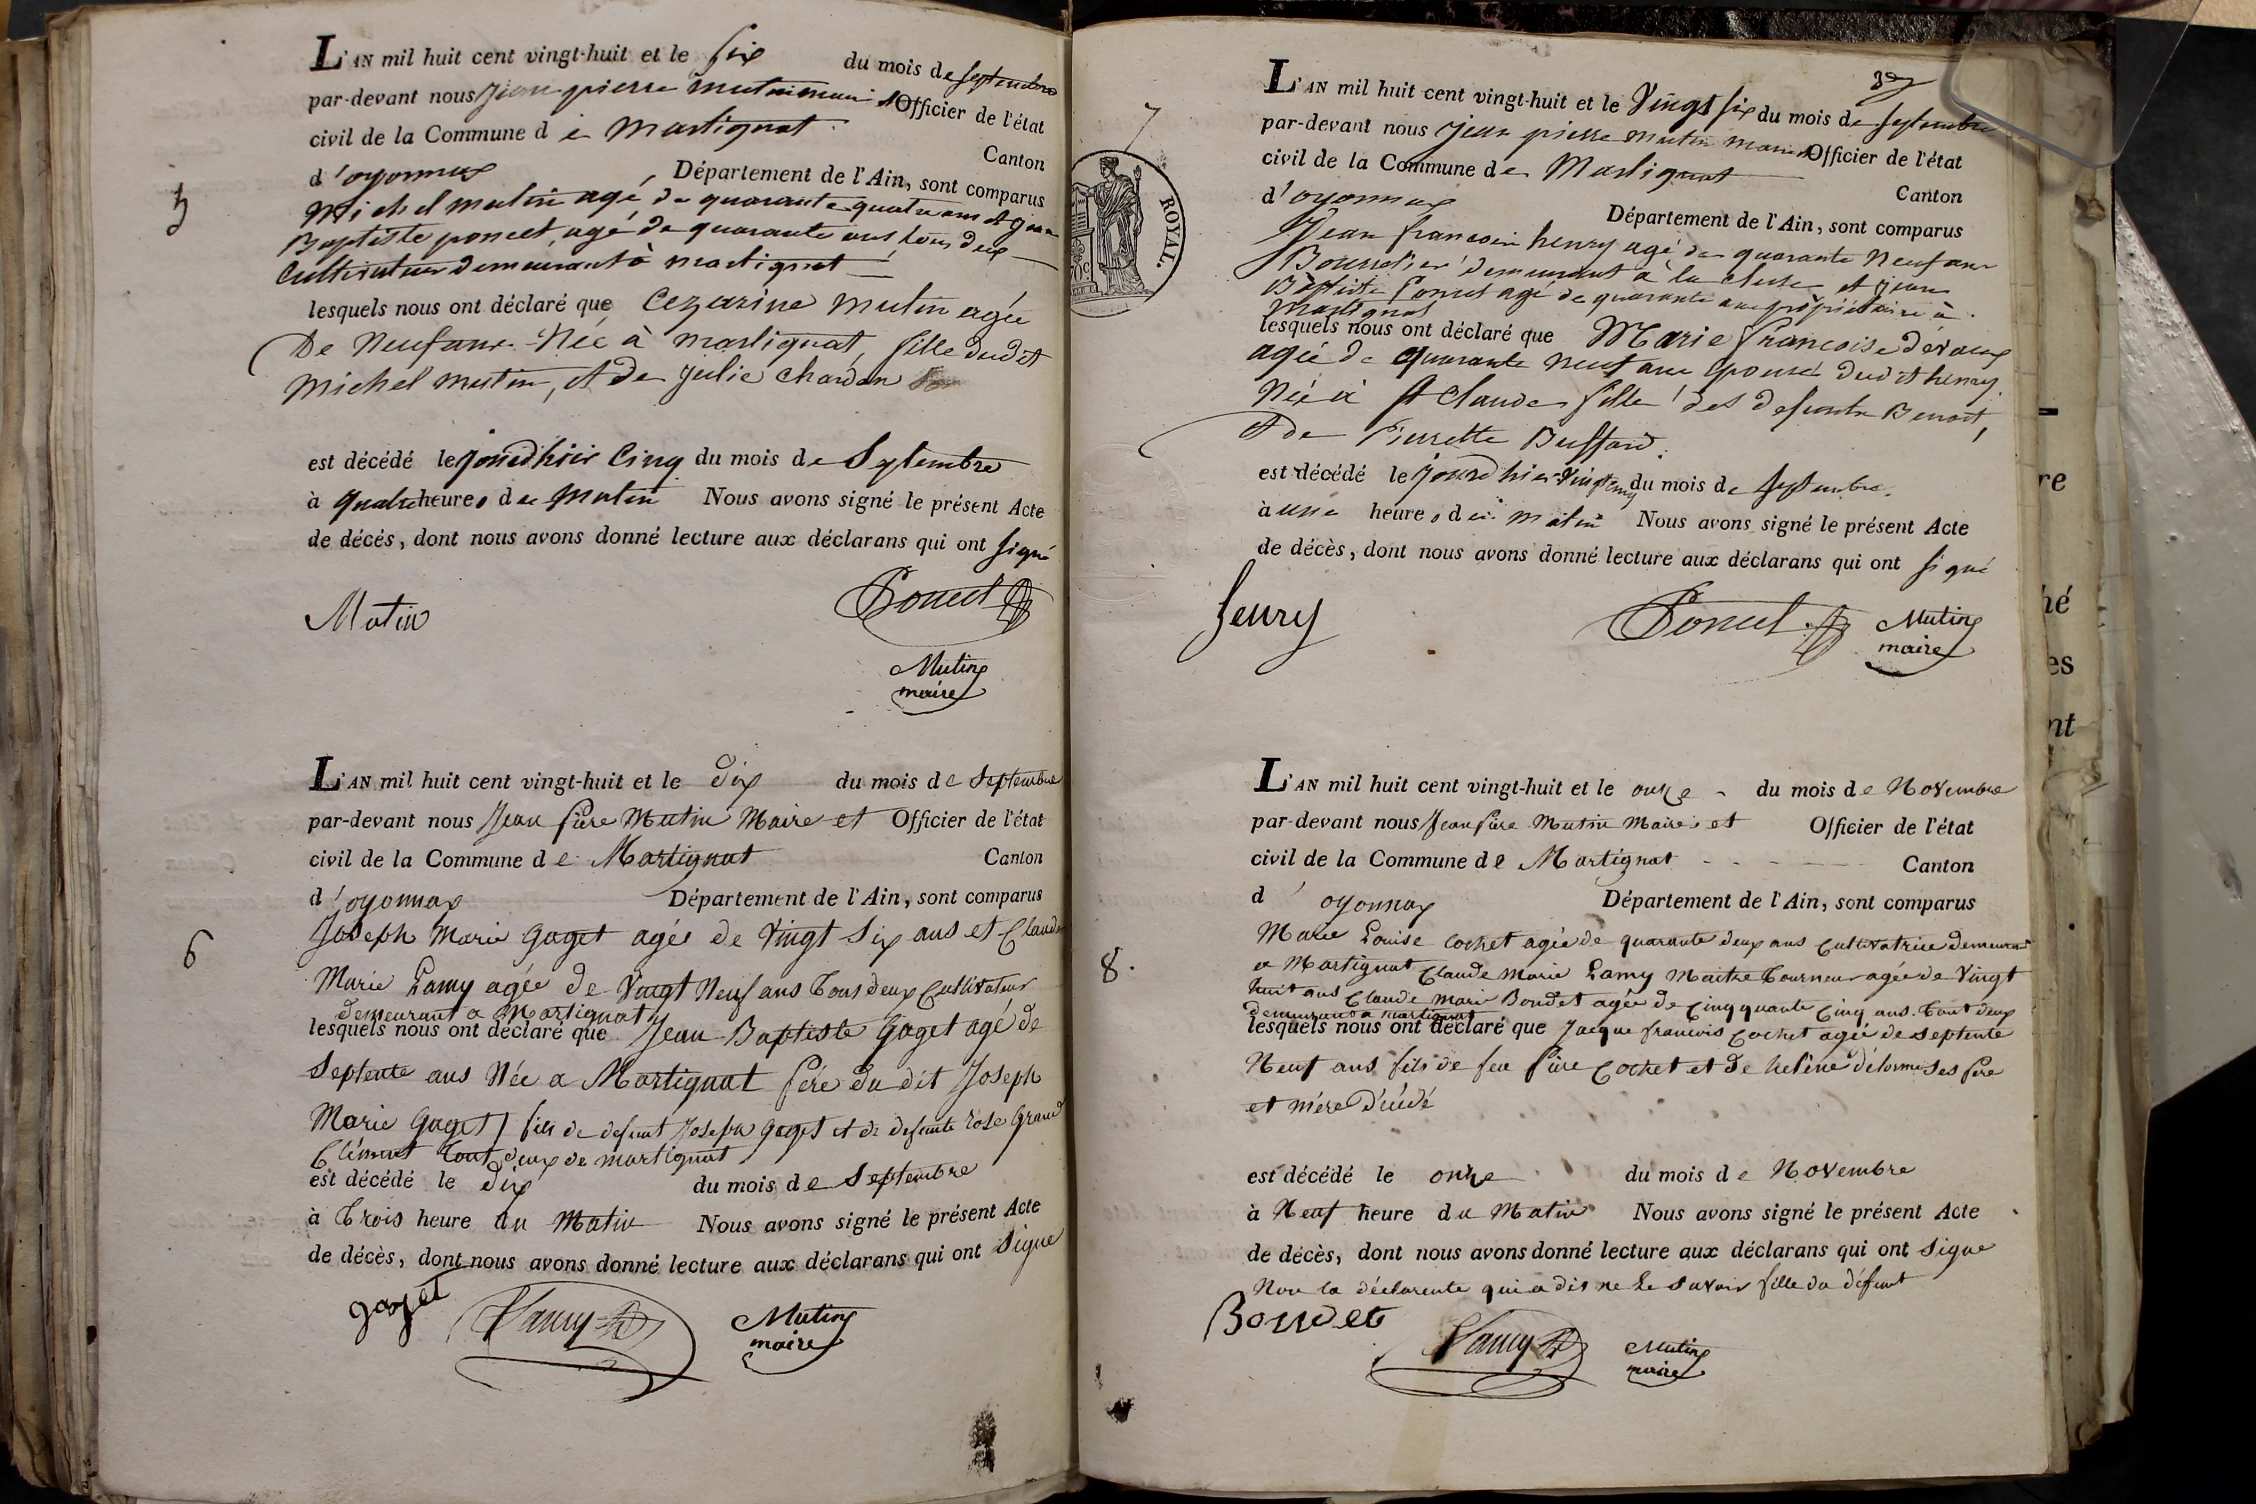 5
L'AN mil huit cent vingt-huit et le six du mois de septembre
par-devant nous jean pierre mutin maire et Officier de l'état
civil de la Commune de Martignat Canton
d'oyonnax Département de l'Ain, sont comparus
Michel mutin agé de quarante quatre ans et jean
Baptiste poncet, agé de quarante ans tous deux
Cultivateurs demeurant à martignat
lesquels nous ont déclaré que Cezarine Mutin agée
De Neuf ans Née à martignat, fille dudit
Michel mutin, et de julie chardon
est décédé le jourdhier cinq du mois de Septembre
à quatre heures du Matin Nous avons signé le présent Acte
de décès, dont nous avons donné lecture aux déclarans qui ont signé
Mutin Poncet
Mutin
maire
6
L'AN mil huit cent vingt-huit et le dix du mois de Septembre
par-devant nous Jean Piere Mutin Maire et Officier de l'état
civil de la Commune de Martignat Canton
d'oyonnax Département de l'Ain, sont comparus
Joseph Marie Goget agée de Vingt Six ans et Claude
Marie Lamy agée de Vingt Neuf ans Tous deux Cultivateur
demeurant a Martignat
lesquels nous ont déclaré que Jean Baptiste Goget agé de
Septente ans Née a Martignat Père du dit Joseph
Marie Goget fils de defunt Joseph Goget et de defunte Rose Grand
Clément Tout deux de martignat
est décédé le dix du mois de Septembre
à Trois heure du Matin Nous avons signé le présent Acte
de décès, dont nous avons donné lecture aux déclarans qui ont Signe
goget Lamy Mutin
maire
7
ROYAL.
L'AN mil huit cent vingt-huit et le Vingt six du mois de septembre
par-devant nous jean pierre mutin maire et Officier de l'état
civil de la Commune de Martignat Canton
d'oyonnax Département de l'Ain, sont comparus
Jean francois henry agé de quarante Neuf ans
Bourrelier demeurant à la cluse et jean
Baptiste Poncet agé de quarante ans propriétaire à
Martignat
lesquels nous ont déclaré que Marie francoise dévaux
agée de quarante neuf ans épouse dudit henry
Née à St Claude fille des defunts Benoit,
et de Pierrette Buffard.
est décédé le jourdhier Vingt cinq du mois de septembre.
à une heure du matin Nous avons signé le présent Acte
de décès, dont nous avons donné lecture aux déclarans qui ont signé
henry Poncet Mutin
maire
8.
L'AN mil huit cent vingt-huit et le onze du mois de Novembre
par-devant nous Jean Piere Mutin Maire et Officier de l'état
civil de la Commune de Martignat Canton
d'oyonnax Département de l'Ain, sont comparus
Marie Louise Cochet agée de quarante deux ans Cultivatrice demeurant
a Martignat Claude Marie Lamy Maitre Tourneur agée de Vingt
huit ans Claude Marie Boudet agée de Cinqquante Cinq ans. Tout deux
demeurant a martignat
lesquels nous ont déclaré que Jacque francois Cochet agée de septente
Neuf ans fils de feu Piere Cochet et de heléne délorme Ses Pere
et mére
est décédé le onze du mois de Novembre
à Neuf heure du Matin Nous avons signé le présent Acte
de décès, dont nous avons donné lecture aux déclarans qui ont Signe
Non la déclarente qui a dit ne Le Savoir fille du défunt
Boudet Lamy Mutin
maire